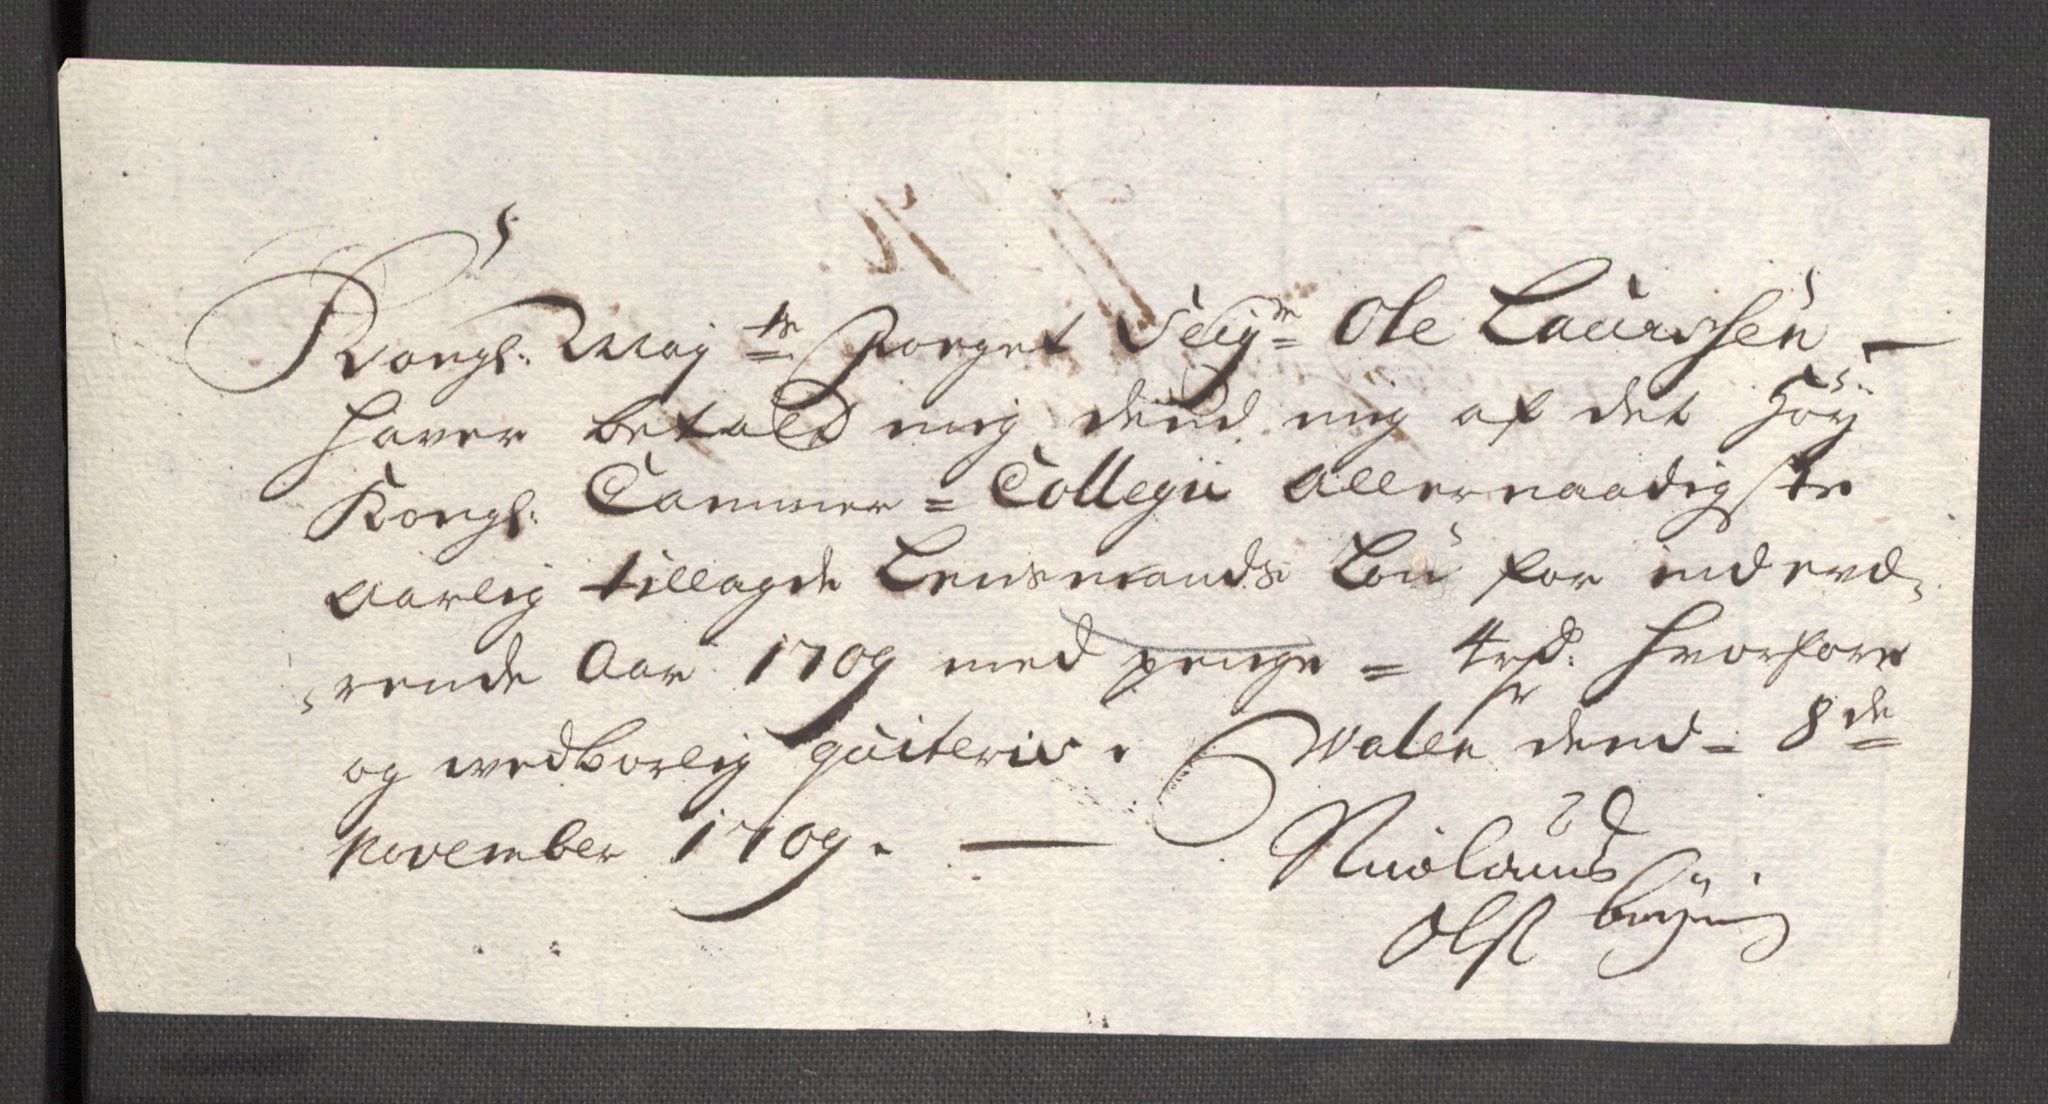 Kongl: May:tts Foeget Seig:r Ole Laurssen —
hafver betald mig dend mig af det Höy
Kongl: Cammer = Collegii Allernaadigste
aarlig tillagde Lensmands Lön for indeve-
rende Aar 1709 med penge = 4 rd: hvorfore
og vedborlig quiteris. Walle dend = 8de
November 1709. —
Nicolaus
Olss